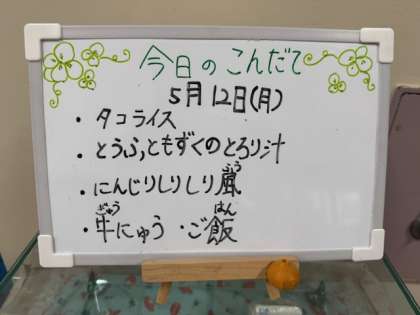 今日のこんだて
5月12日(月)
・タコライス
・とうふ,ともずくのとろり汁
・にんじりしりしり嵐
ふう
ぎゅう はん
・牛にゅう ・ご飯